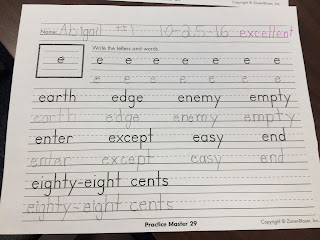 Copyright © Zaner-Bloser, Inc.
Name: Abigail #1 10-25-16 excellent
Write the letters and words.
e e e e e e e e
e e e e e e e
earth edge enemy empty
earth edge enemy empty
enter except easy end
enter except easy end
eighty-eight cents
eighty-eight cents
Practice Master 29
Copyright © Zaner-Bloser, Inc.